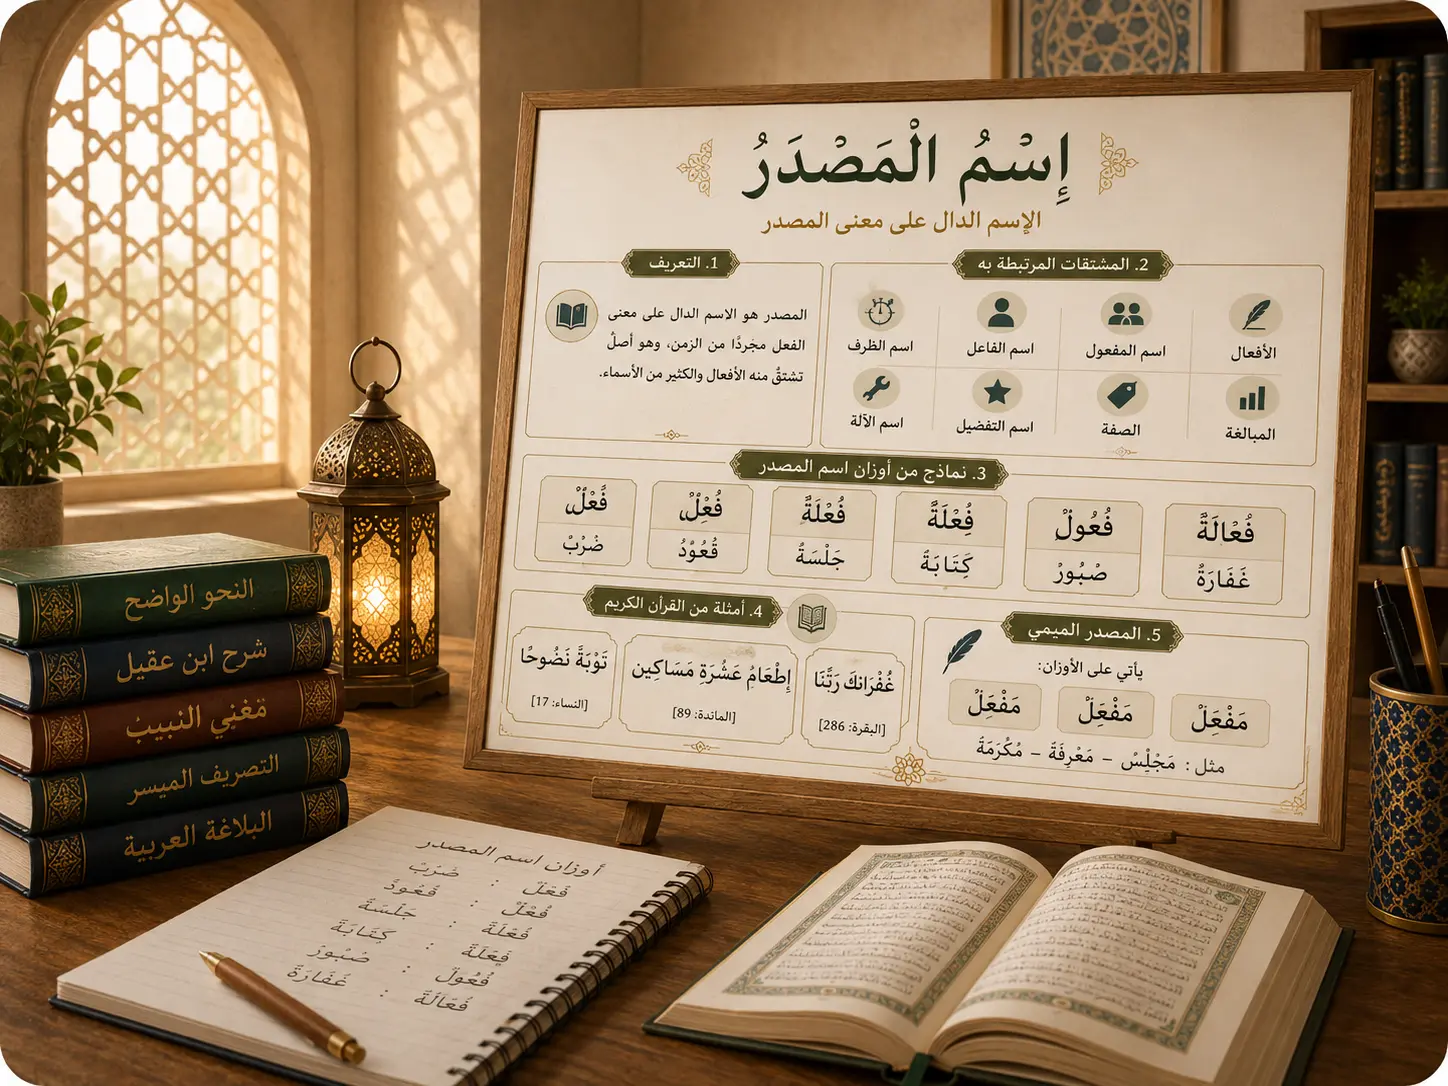 إِسْمُ الْمَصْدَرُ
الإسم الدال على معنى المصدر
1. التعريف
المصدر هو الاسم الدال على معنى
الفعل مجردًا من الزمن، وهو أصلٌ
تشتقٌ منه الأفعال والكثير من الأسماء.
2. المشتقات المرتبطة به
الأفعال
اسم المفعول
اسم الفاعل
اسم الظرف
المبالغة
الصفة
اسم التفضيل
اسم الآلة
3. نماذج من أوزان اسم المصدر
فُعْالَةً
غَفَارَةُ
فُعُولْ
صْبُورْ
فِعْلَةً
كِتَابَةُ
فُعْلَةً
جَلْسَةُ
فُعْلٌ
قُعُودُ
فَعْلٌ
ضْرْبْ
4. أمثلة من القرآن الكريم
غُفْرَانكَ رَبَّنَا
[البقرة: 286]
إِطْعَامُ عَشْرَةِ مَسَاكِين
[المائدة: 89]
تَوْبَةً نَصُوحًا
[النساء: 17]
5. المصدر الميمي
يأتي على الأوزان:
مَفْعَلْ
مَفْعَلْ
مَفْعَلْ
مثل : مَجْلِسْ – مَعْرِفَةْ – مُكْرَمَةْ
النحو الواضح
شرح ابن عقيل
مغني النبيب
التصريف الميسر
البلاغة العربية
أوزان اسم المصدر
فَعْلْ : ضرْبْ
فُعْلْ : قُعُودْ
فُعْلَةْ : جَلسَةْ
فِعْلَةْ : كِتَابَةْ
فُعُولْ : صْبُورْ
فُعَالَةْ : غَفَارَةْ